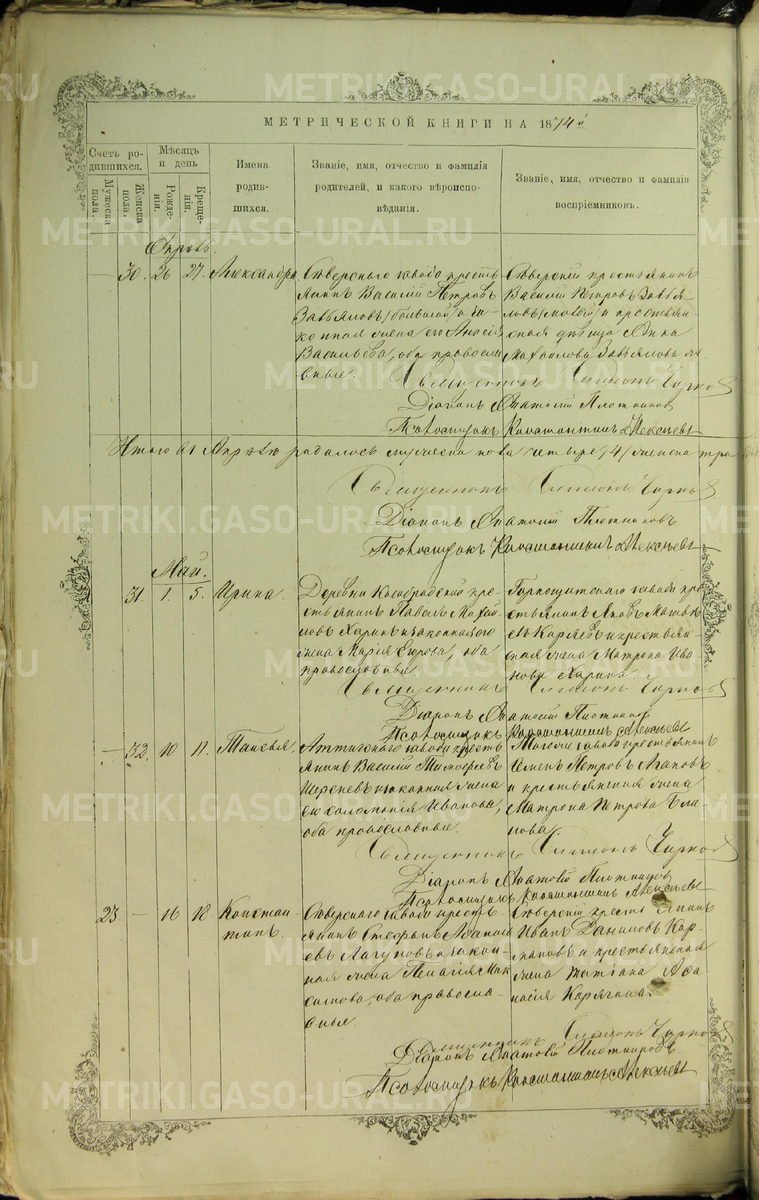 METRIKI.GASO-URAL.RU
МЕТРИЧЕСКОЙ КНИГИ НА 1874й
Счетъ ро-
дившихся.
Мужеска
пола.
Женска
пола.
Мѣсяцъ
и день
Рожде-
нія.
Креще-
нія.
Имена
родив-
шихся.
Званіе, имя, отчество и фамилія
родителей, и какого вѣроиспо-
вѣданія.
Званіе, имя, отчество и фамилія
воспріемниковъ.
Апрѣль.
— 30. 26 27. Александра
Сѣверскаго завода кресть
янинъ Василій Петровъ
Завьяловъ (большой) и за-
конная жена его Анисія
Васильева, оба православ
ные.
Сѣверскій крестьянинъ
Василій Петровъ Завья
ловъ (малой) и крестьян
ская дѣвица
Завьялова
Священникъ Симеонъ Чирков
Діаконъ Плотниковъ
Псаломщикъ Константинъ Алексѣевъ
Итого въ Апрѣлѣ родилось мужеска пола четыре (4) женска три
Священникъ Симеонъ Чирков
Діаконъ Плотниковъ
Псаломщикъ Константинъ Алексѣевъ
Май.
31. 1. 5. Ирина.
Деревни Кособродской кре-
стьянинъ Павелъ Михай
ловъ Харинъ и законная его
жена Марія Егорова, оба
православные
Горнощитскаго завода кре
стьянинъ Яковъ Матвѣ
евъ и крестьян
ская жена Матрона Ива
нова Харина.
Священникъ Симеонъ Чирков
Діаконъ Плотников
Псаломщикъ Константинъ Алексѣевъ
— 32. 10 11. Таисья.
завода кресть
янинъ Василій Тимофеевъ
и законная жена
его Соломонія Иванова,
оба православные.
завода крестьянинъ
Семенъ Петровъ Агаповъ
и крестьянская жена
Матрона Петрова Бли
нова
Священникъ Симеонъ Чирков
Діаконъ Плотниковъ
Псаломщикъ Константинъ Алексѣевъ
23 — 16 18. Констан
тинъ.
Сѣверскаго завода кресть
янинъ Стефанъ Афанась
евъ Лагуновъ и закон-
ная жена Пелагія Мак
симова, оба правосла-
вные.
Сѣверскій крестьянинъ
Иванъ Даниловъ Кар
и крестьянская
жена Татіана Афа
насія Карягина.
Священникъ Симеонъ Чирков
Діаконъ Плотниковъ
Псаломщикъ Константинъ Алексѣевъ